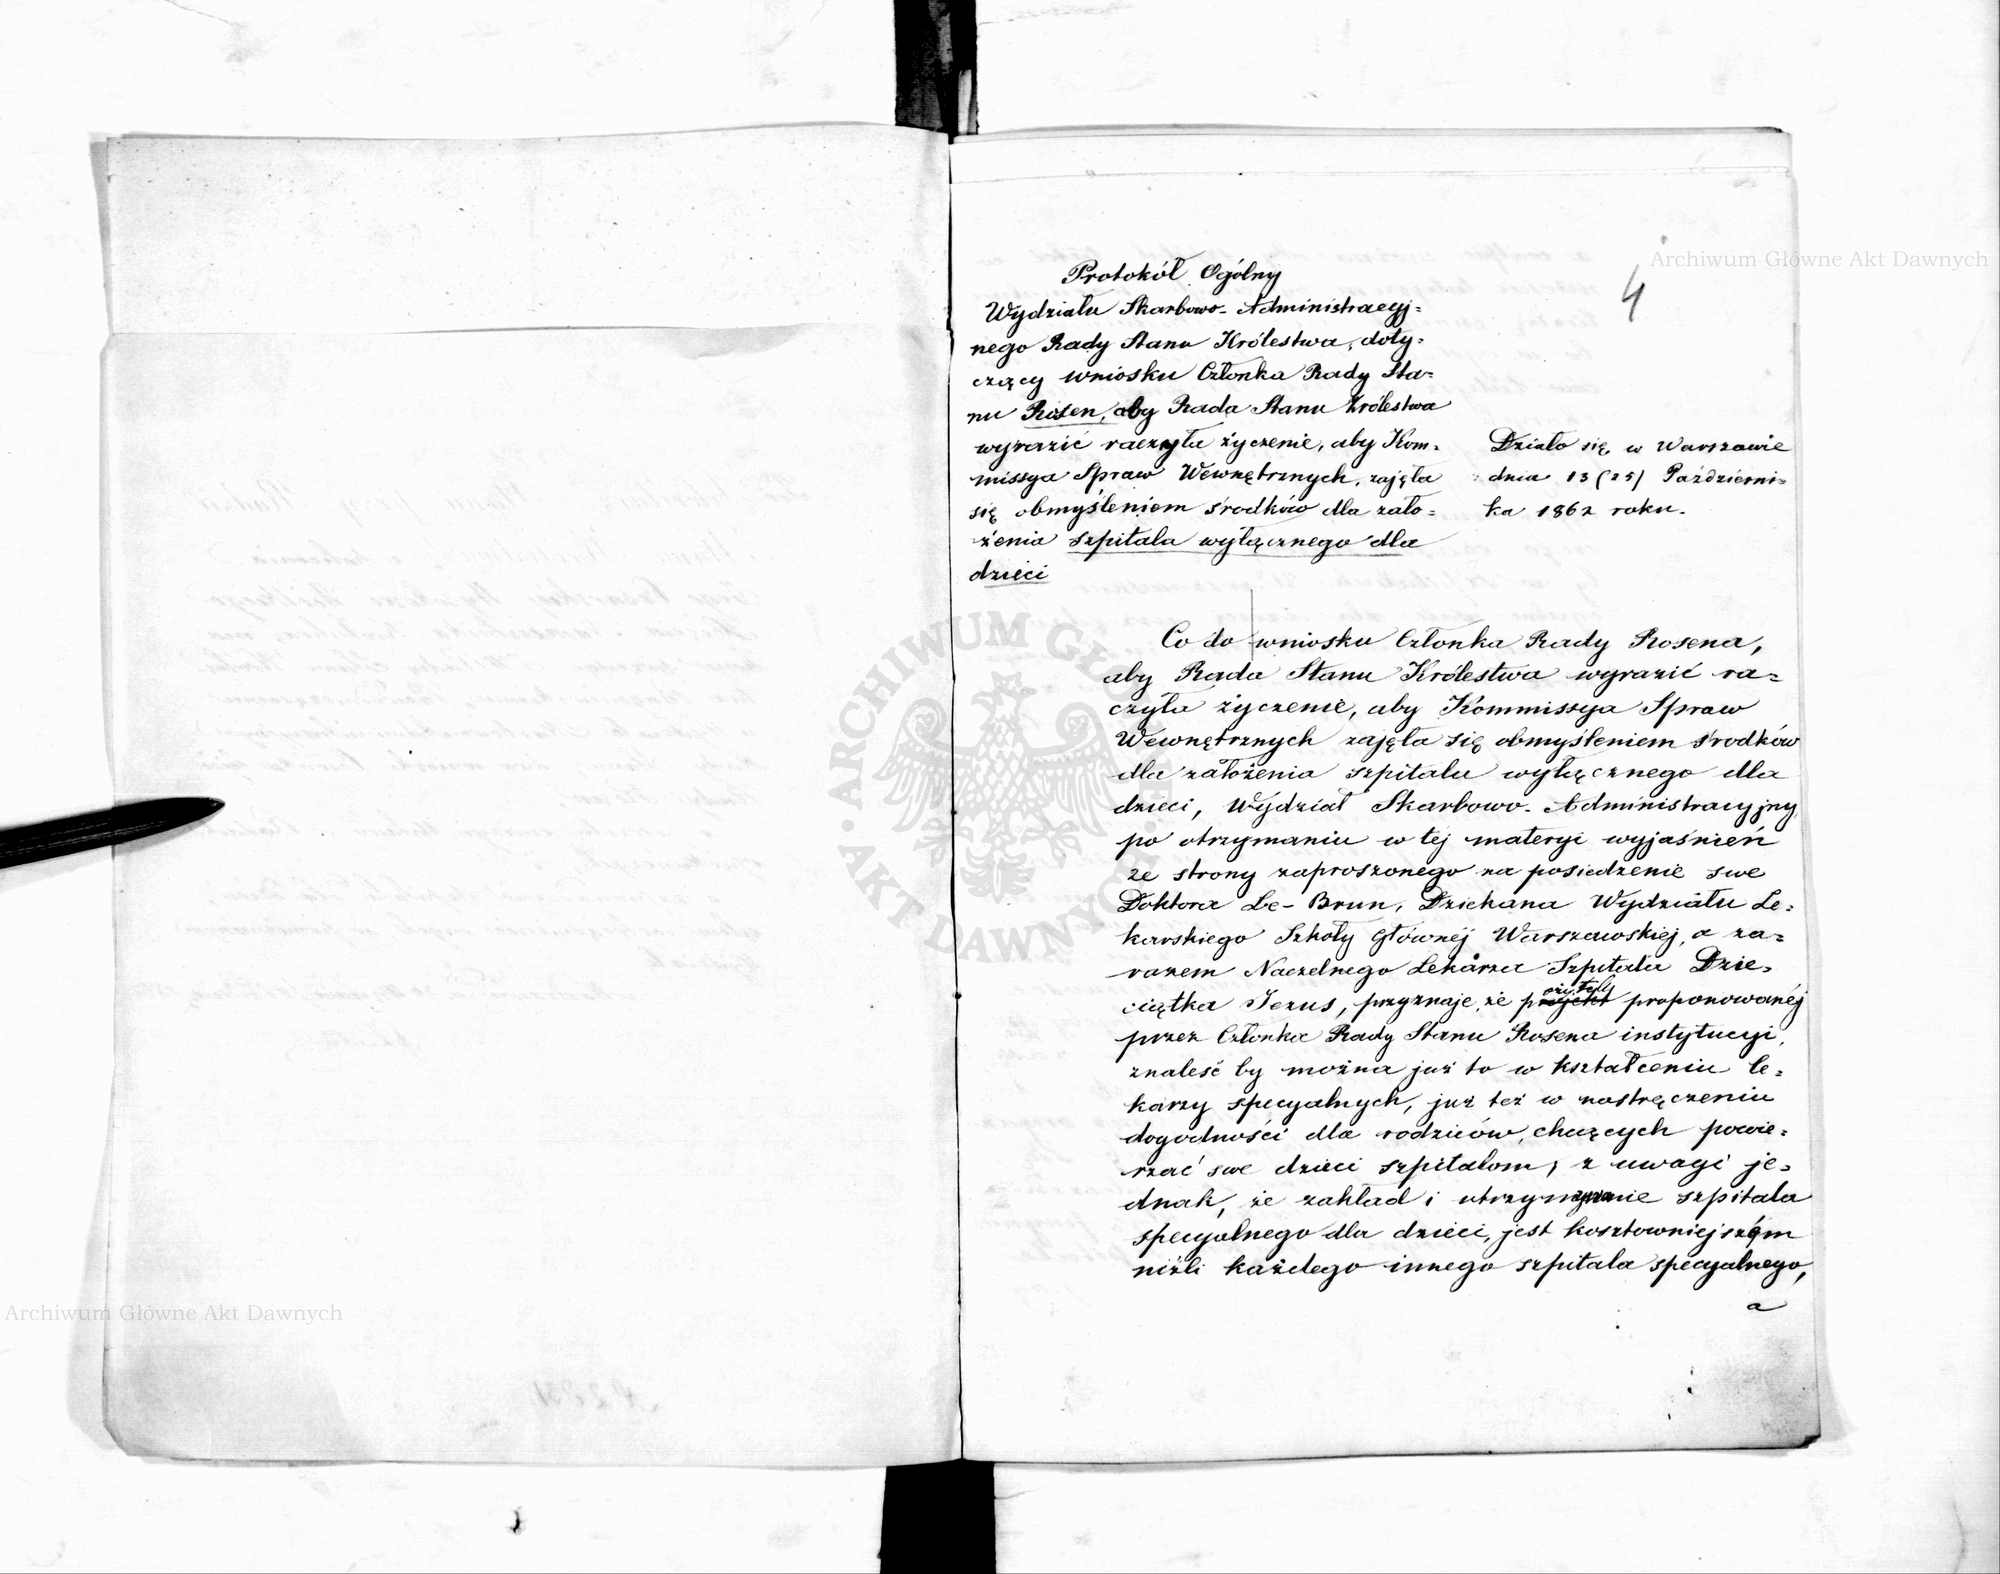 Archiwum Główne Akt Dawnych
4
Protokół Ogólny
Wydziału Skarbowo-Administracyj=
nego Rady Stanu Królestwa, doty=
czący wniosku Członka Rady Sta=
nu Rosen, aby Rada Stanu Królestwa
wyrazić raczyła życzenie, aby Kom=
missya Spraw Wewnętrznych, zajęła
się obmyśleniem środków dla zało=
żenia szpitala wyłącznego dla
dzieci
Działo się w Warszawie
dnia 13 (25) Październi=
ka 1862 roku.
Co do wniosku Członka Rady Rosena,
aby Rada Stanu Królestwa wyrazić ra=
czyła życzenie, aby Kommissya Spraw
Wewnętrznych zajęła się obmyśleniem środków
dla założenia szpitalu wyłącznego dla
dzieci, Wydział Skarbowo-Administracyjny
po otrzymaniu w tej materyi wyjaśnień
ze strony zaproszonego na posiedzenie swe
Doktora Le-Brun, Dziekana Wydziału Le=
karskiego Szkoły Głównéj Warszawskiej, a za=
razem Naczelnego Lekarza Szpitala Dzie=
ciątka Jezus, przyznaje, że projekt proponowanéj
przez Członka Rady Stanu Rosena instytucyi,
znaleść by można już to w kształceniu le=
karzy specyalnych, już też w nastręczeniu
dogodności dla rodziców, chcących powie=
rzać swe dzieci szpitalom; z uwagi je=
dnak, że zakład i utrzymanie szpitala
specyalnego dla dzieci, jest kosztowniejszém
niżli każdego innego szpitala specyalnego,
a
ARCHIWUM GŁÓWNE AKT DAWNYCH
Archiwum Główne Akt Dawnych